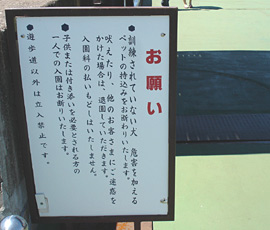 お願い
●訓練されていない犬　危害を加える
ペットの持込みをお断わりいたします。
吠えたり、他のお客さまにご迷惑を
かけた場合は、退園していただきます。
入園料の払いもどしはいたしません。
●子供または付き添いを必要とされる方の
一人での入園はお断りいたします。
●遊歩道以外は立入禁止です。